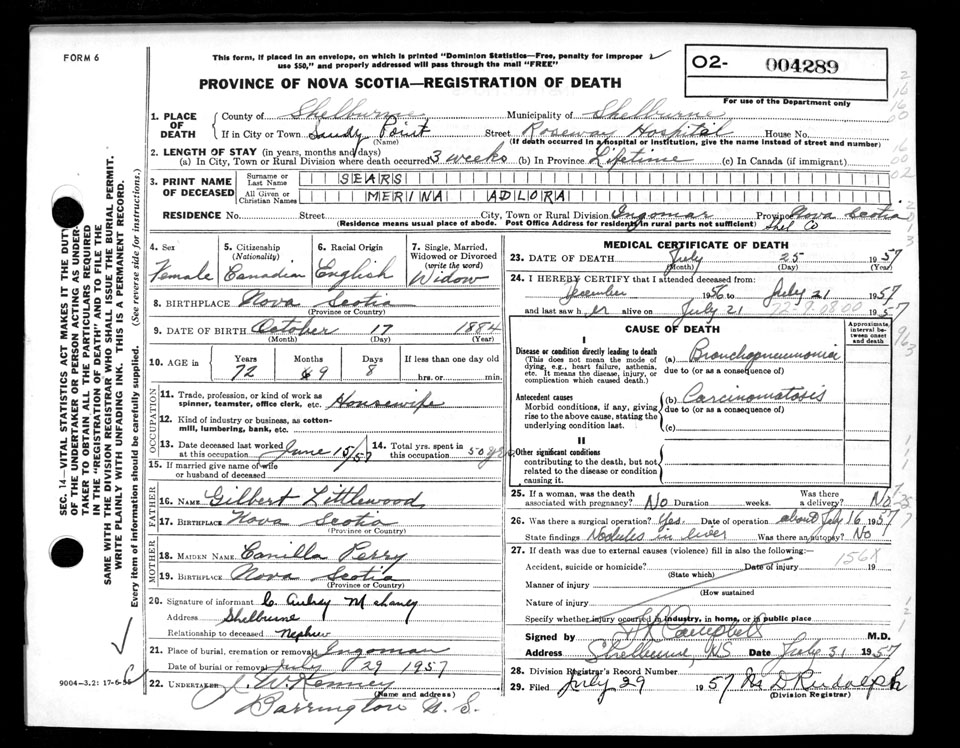 FORM 6
This form, if placed in an envelope, on which is printed "Dominion Statistics—Free, penalty for improper
use $50," and properly addressed will pass through the mail "FREE"
PROVINCE OF NOVA SCOTIA—REGISTRATION OF DEATH
02- 004289
For use of the Department only
1. PLACE OF DEATH
County of Shelburne Municipality of Shelburne
If in City or Town Sandy Point Street Roseway Hospital House No.
(Name) (If death occurred in a hospital or institution, give the name instead of street and number)
2. LENGTH OF STAY (in years, months and days)
(a) In City, Town or Rural Division where death occurred 3 weeks (b) In Province Lifetime (c) In Canada (if immigrant)
3. PRINT NAME OF DECEASED
Surname or Last Name SEARS
All Given or Christian Names MERINA ADLORA
RESIDENCE No. Street City, Town or Rural Division Ingomar Province Nova Scotia
(Residence means usual place of abode. Post Office Address for residents in rural parts not sufficient) Shel Co
4. Sex Female
5. Citizenship (Nationality) Canadian
6. Racial Origin English
7. Single, Married, Widowed or Divorced (write the word) Widow
8. BIRTHPLACE Nova Scotia
(Province or Country)
9. DATE OF BIRTH October 17 1884
(Month) (Day) (Year)
10. AGE in Years 72 Months 9 Days 8 If less than one day old hrs. or min.
OCCUPATION
11. Trade, profession, or kind of work as spinner, teamster, office clerk, etc. Housewife
12. Kind of industry or business, as cotton-mill, lumbering, bank, etc.
13. Date deceased last worked at this occupation June 15/57
14. Total yrs. spent in this occupation 50 yrs
15. If married give name of wife or husband of deceased
FATHER
16. NAME Gilbert Littlewood
17. BIRTHPLACE Nova Scotia
(Province or Country)
MOTHER
18. MAIDEN NAME Canilla Perry
19. BIRTHPLACE Nova Scotia
(Province or Country)
20. Signature of informant C. Aubrey Mahaney
Address Shelburne
Relationship to deceased Nephew
21. Place of burial, cremation or removal Ingomar
Date of burial or removal July 29 1957
22. UNDERTAKER J. W. Kenney
(Name and address)
Barrington N. S.
MEDICAL CERTIFICATE OF DEATH
23. DATE OF DEATH July 25 1957
(Month) (Day) (Year)
24. I HEREBY CERTIFY that I attended deceased from:
December 1956 to July 21 1957
and last saw h er alive on July 21 1957
CAUSE OF DEATH
Approximate interval between onset and death
I
Disease or condition directly leading to death
(This does not mean the mode of dying, e.g., heart failure, asthenia, etc. It means the disease, injury, or complication which caused death.)
(a) Bronchopneumonia
due to (or as a consequence of)
Antecedent causes
Morbid conditions, if any, giving rise to the above cause, stating the underlying condition last.
(b) Carcinomatosis
due to (or as a consequence of)
(c)
II
Other significant conditions
contributing to the death, but not related to the disease or condition causing it.
25. If a woman, was the death associated with pregnancy? No Duration weeks. Was there a delivery? No
26. Was there a surgical operation? Yes. Date of operation about July 16 1957
State findings Nodules in liver Was there an autopsy? No
27. If death was due to external causes (violence) fill in also the following:—
Accident, suicide or homicide? Date of injury 19
(State which)
156X
Manner of injury
(How sustained
Nature of injury
Specify whether injury occurred in industry, in home, or in public place
Signed by Campbell M.D.
Address Shelburne, NS Date July 31 1957
28. Division Registrar's Record Number
29. Filed July 29 1957 D Rudolph
(Division Registrar)
SEC. 14—VITAL STATISTICS ACT MAKES IT THE DUTY
OF THE UNDERTAKER OR PERSON ACTING AS UNDERTAKER TO OBTAIN ALL THE PARTICULARS REQUIRED
IN THE "REGISTRATION OF DEATH" AND TO FILE THE
SAME WITH THE DIVISION REGISTRAR WHO SHALL ISSUE THE BURIAL PERMIT.
WRITE PLAINLY WITH UNFADING INK. THIS IS A PERMANENT RECORD.
Every item of information should be carefully supplied. (See reverse side for instructions.)
9004-3.2: 17-6-55